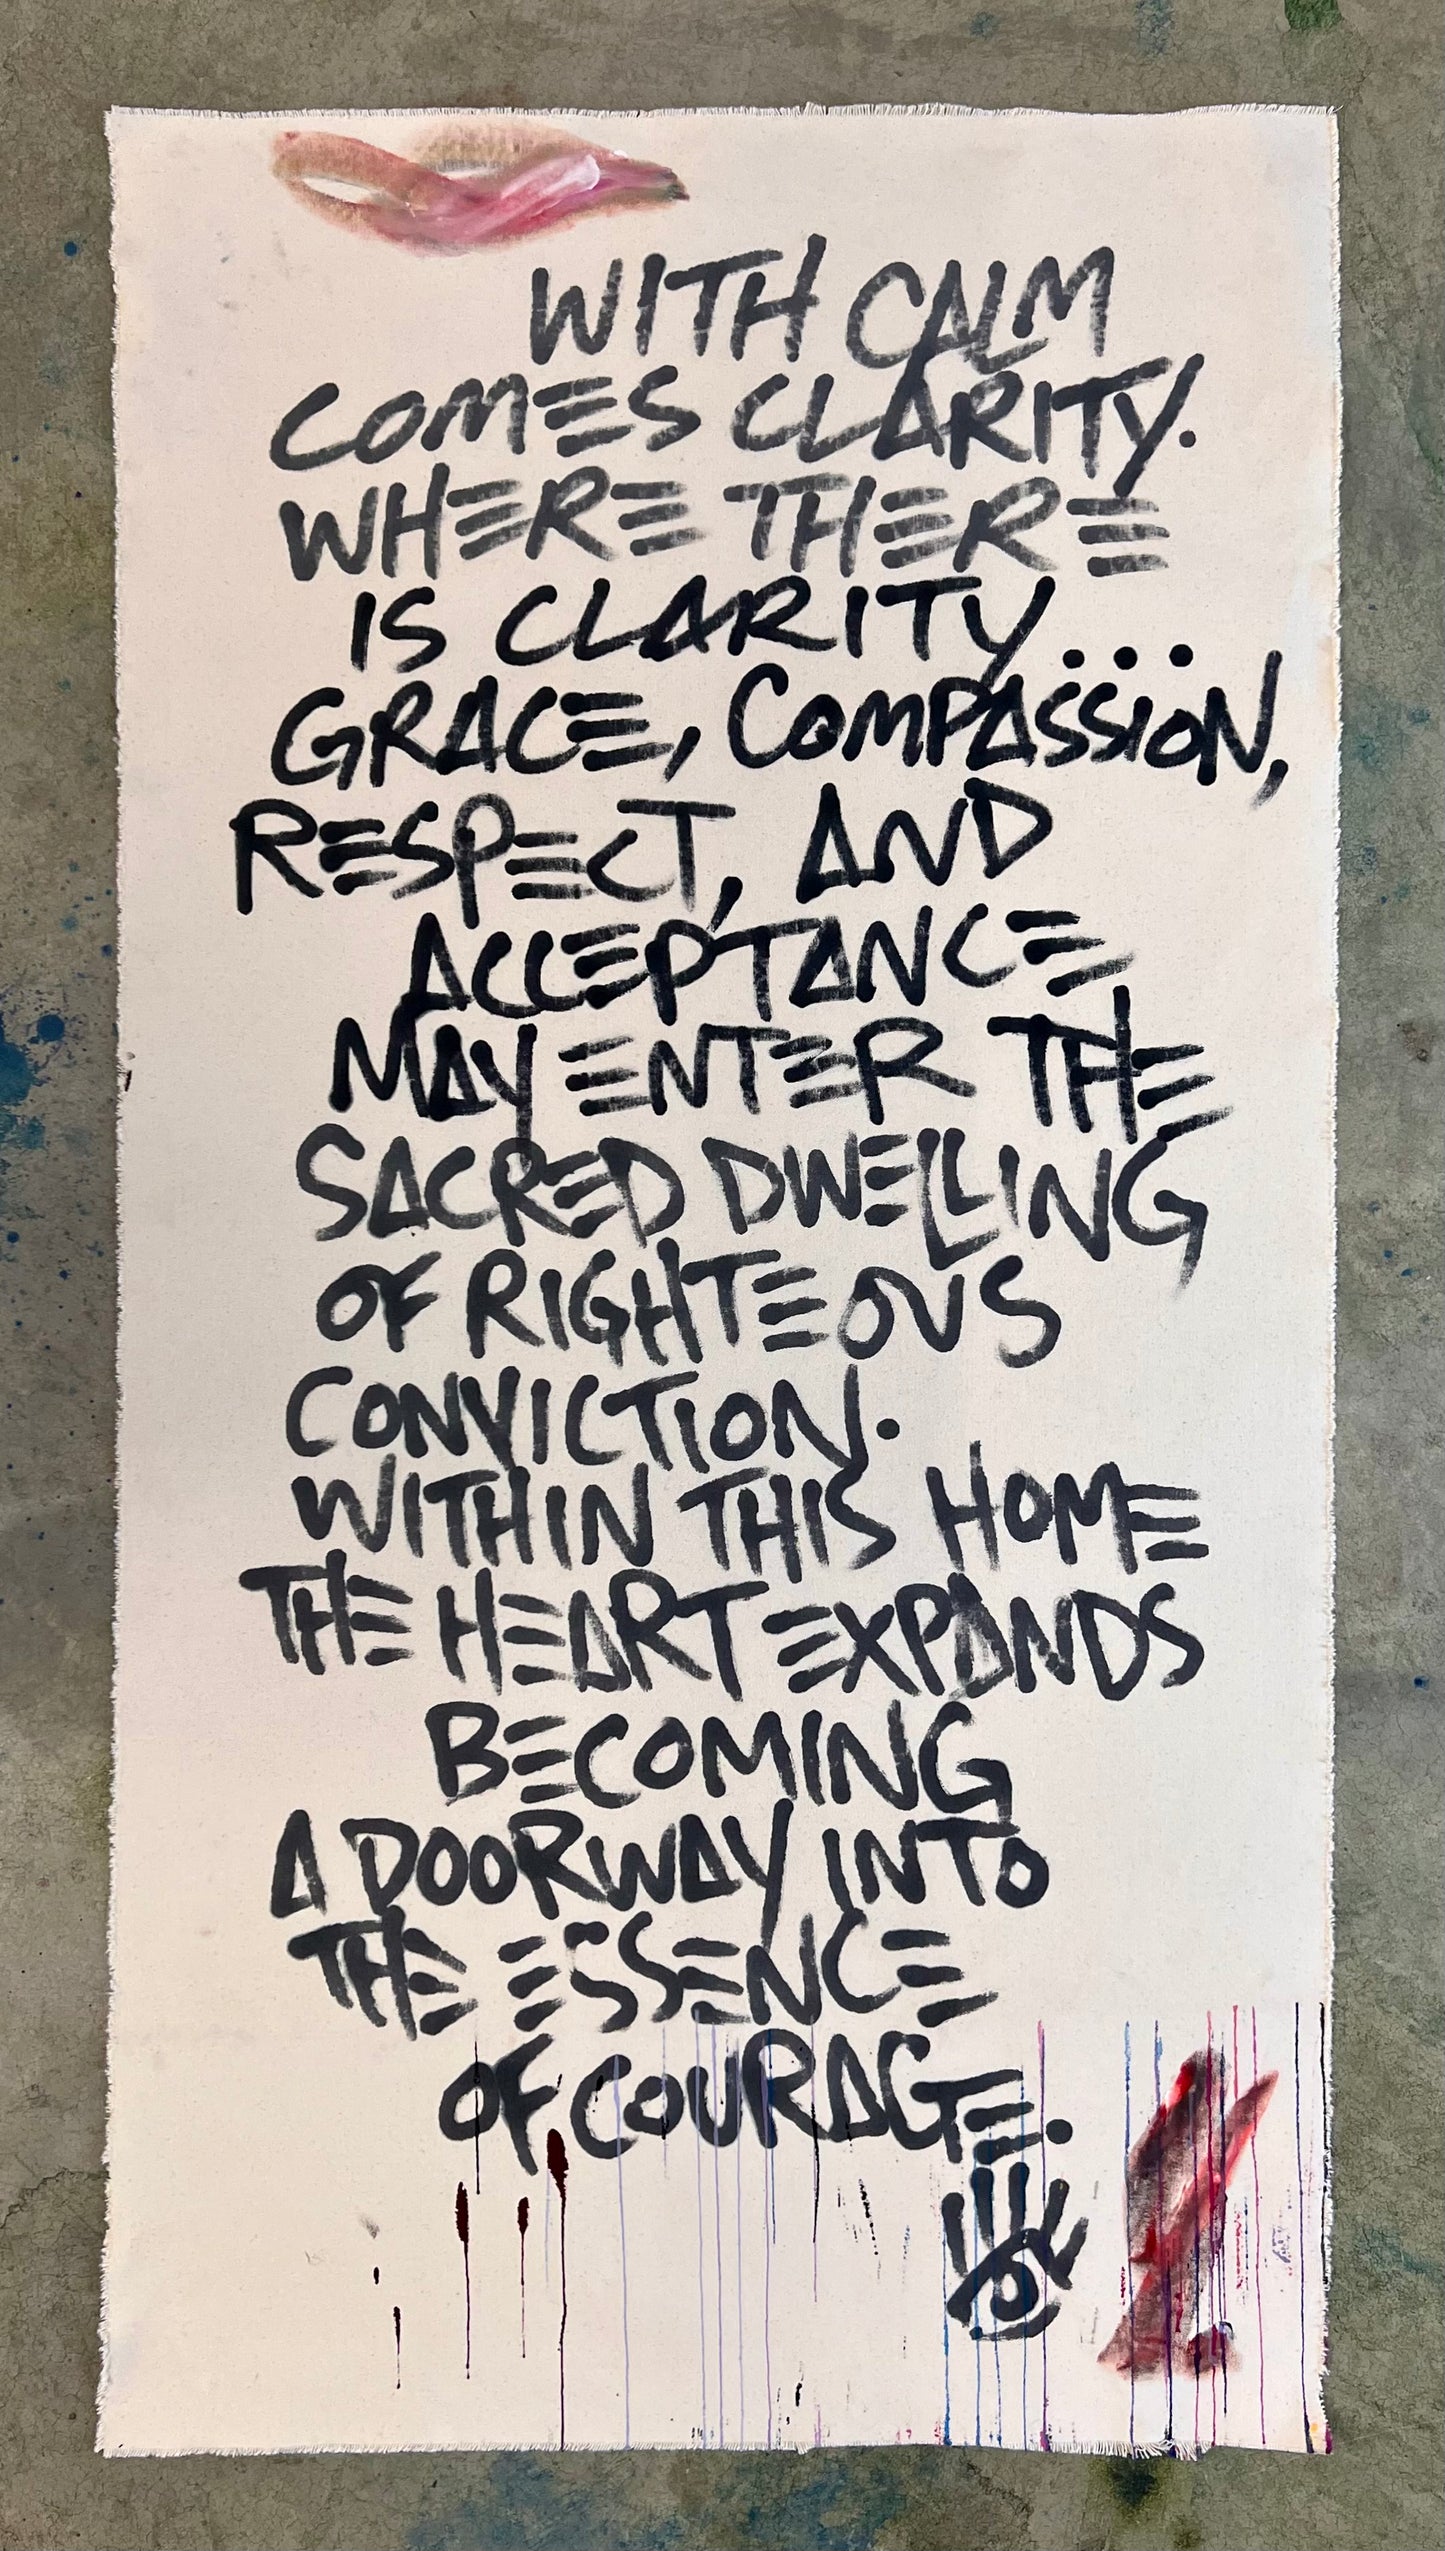 WITH CALM
COMES CLARITY.
WHERE THERE
IS CLARITY...
GRACE, COMPASSION,
RESPECT, AND
ACCEPTANCE
MAY ENTER THE
SACRED DWELLING
OF RIGHTEOUS
CONVICTION.
WITHIN THIS HOME
THE HEART EXPANDS
BECOMING
A DOORWAY INTO
THE ESSENCE
OF COURAGE.